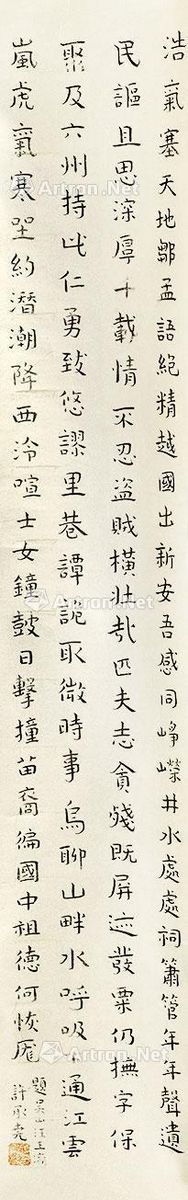 浩氣塞天地鄒孟語絕精越國出新安吾感同崢嶸井水處處祠簫管年年聲遺
民謳且思深厚千載情不忍盜賊橫壯哉匹夫志貪殘既屏迹發粟仍撫字保
聚及六州持此仁勇致悠謬里巷譚詑取微時事烏聊山畔水呼吸通江雲
嵐虎氣寒堅約潛潮降西泠喧士女鐘鼓日擊撞苗裔徧國中祖德何恢厖
題吳山汪王
許承堯
Artron.Net
Artron.Net
Artron.Net